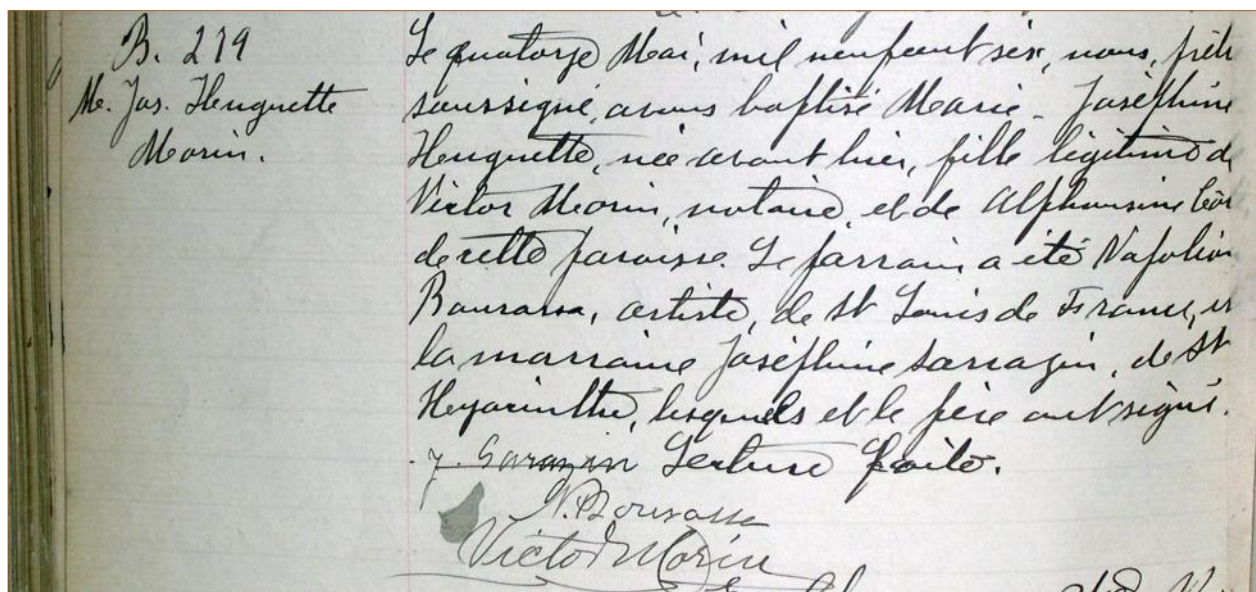 B. 219
Me. Jos. Huguette
Morin.
Le quatorze Mai, mil neuf cent six, nous, prêt
soussigné, avons baptisé Marie Joséphine
Huguette, née avant hier, fille légitime de
Victor Morin, notaire, et de Alphonsine Côt
de cette paroisse. Le parrain a été Napoléon
Bourassa, artiste, de St Louis de France, et
la marraine Joséphine Sarrazin, de St
Hyacinthe, lesquels et le père ont signé.
J. Sarazin Lecture faite.
N. Bourassa
Victor Morin